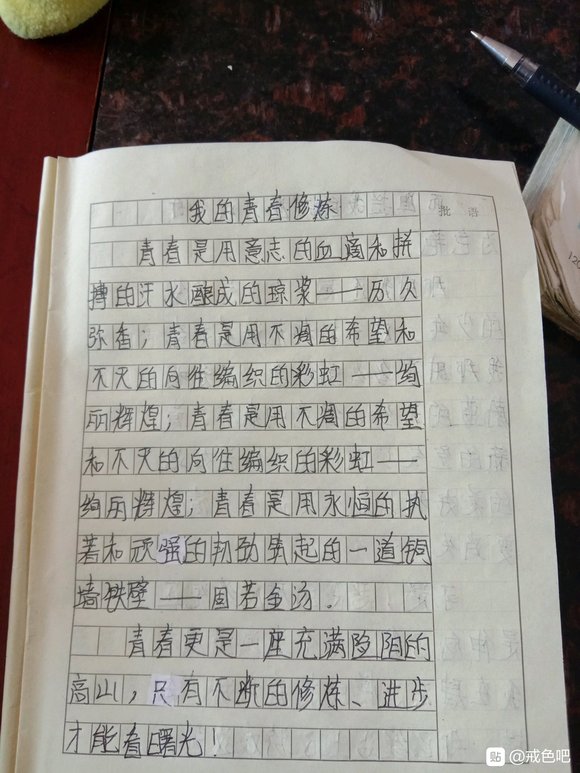 我的青春修炼
批语
青春是用意志的血滴和拼
搏的汗水酿成的琼浆——历久
弥香；青春是用不凋的希望和
不灭的向往编织的彩虹——绚
丽辉煌；青春是用不凋的希望
和不灭的向往编织的彩虹——
绚丽辉煌；青春是用永恒的执
著和顽强的韧劲筑起的一道铜
墙铁壁——固若金汤．
青春更是一座充满险阻的
高山，只有不断的修炼、进步
才能看曙光！
贴 @戒色吧